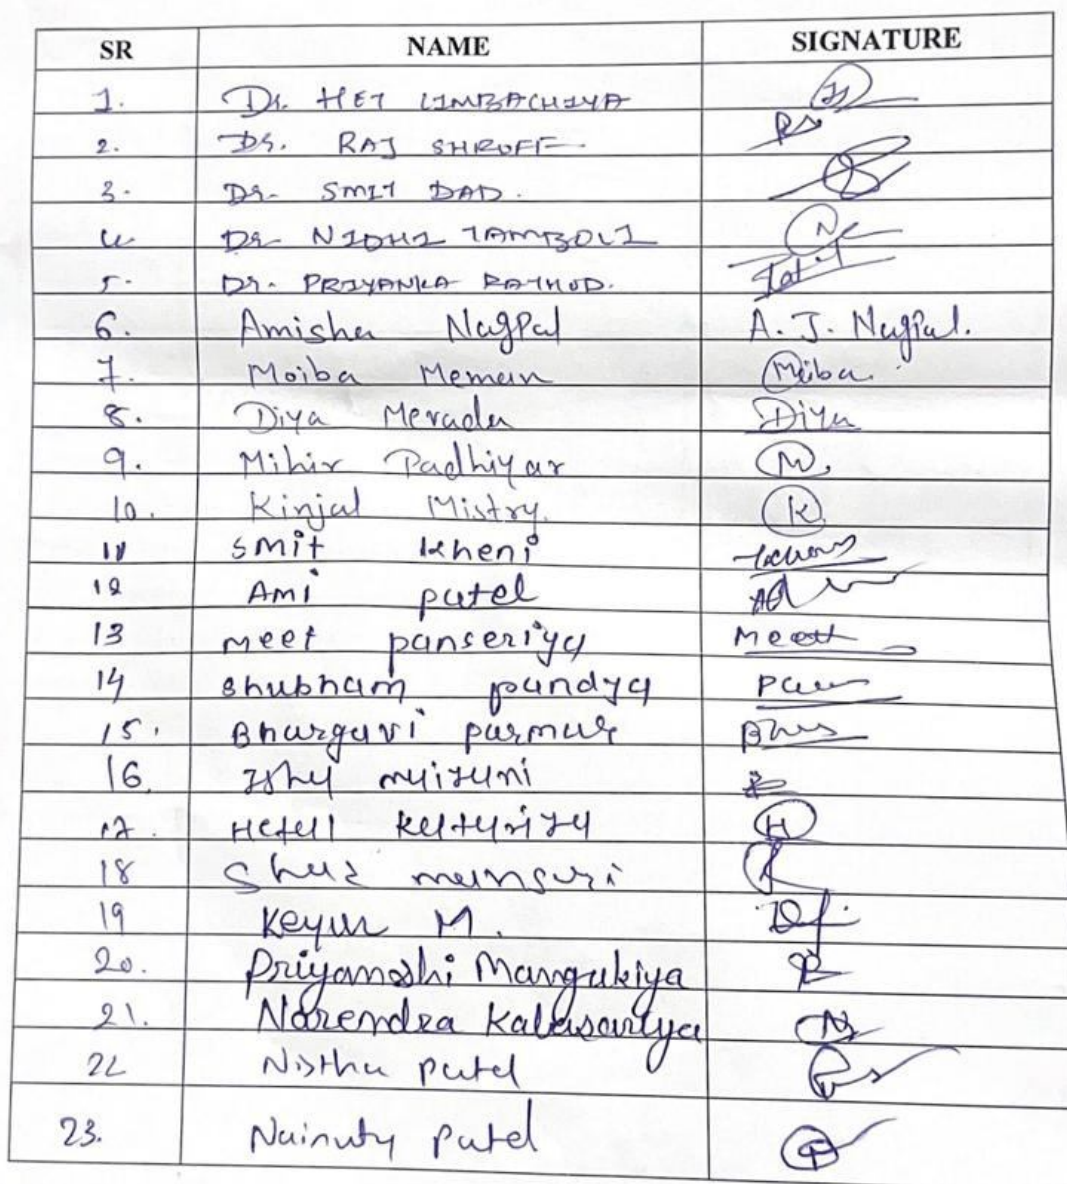 SR NAME SIGNATURE
1. Dr. HET LIMBACHIYA
2. Dr. RAJ SHROFF
3. Dr. SMIT DAD.
4 Dr. NIDHI TAMBOLI
5. Dr. PRIYANKA RATHOD.
6. Amisha Nagpal A. J. Nagpal.
7. Moiba Meman Moiba
8. Diya Merada Diya
9. Mihir Padhiyar M.
10. Kinjal Mistry. K
11 Smit Kheni
12 Ami patel
13 meet panseriya Meet
14 Shubham pandya
15. Bhargavi parmar
16.
17. Hetall H
18 mansuri
19 Keyur M.
20. Priyanshi Mangukiya
21. Narendra Kalasariya N
22 Nistha patel
23. patel